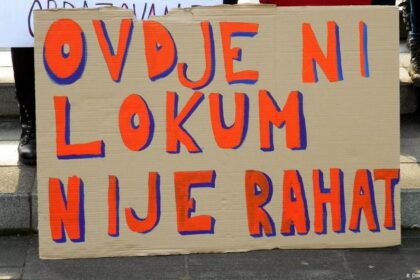 OBRAZOVANJE
OVDJE NI
LOKUM
NIJE RAHAT